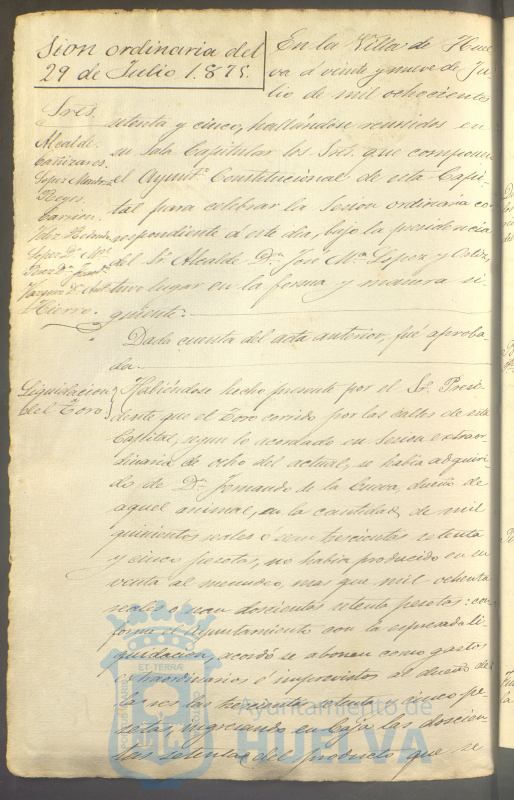 Sion ordinaria del
29 de Julio 1.875.
Sres.
Alcalde.
Cañizares.
Lopez
Reyes.
Carrion.
Lopez Dn. Ml.
Hierro.
En la Villa de Huel
va á veinte y nueve de Ju
lio de mil ochocientos
setenta y cinco, hallándose reunidos en
su Sala Capitular los Sres. que componen
el Ayuntº. Constitucional de esta Capi-
tal para celebrar la Sesion ordinaria co
rrespondiente á este dia, bajo la presidencia
del Sr. Alcalde Dn. José Mª. Lopez y
tuvo lugar en la forma y manera si
guiente:
Dada cuenta del acta anterior, fué aproba-
da.
Liquidacion
del Toro
Habiéndose hecho presente por el Sr. Presi
dente que el Toro corrido por las calles de esta
Capital, segun lo acordado en Sesion extraor
dinaria de ocho del actual, se habia adquiri-
do de Dn. Fernando de la Cueva, dueño de
aquel animal, en la cantidad de mil
quinientos reales ó sean trescientas setenta
y cinco pesetas, no habia producido en su
venta al menudeo, mas que mil ochenta
reales o sean doscientas setenta pesetas: con
forme el Ayuntamiento con la espresada li
quidacion, acordó se abonen como gastos
extraordinarios é imprevistos al dueño de
la res las trescientas setenta y cinco pe
setas, ingresando en Caja las doscien
tas setenta del producto que se
PORTUS MARIS
ET TERRÆ
Ayuntamiento de
HUELVA